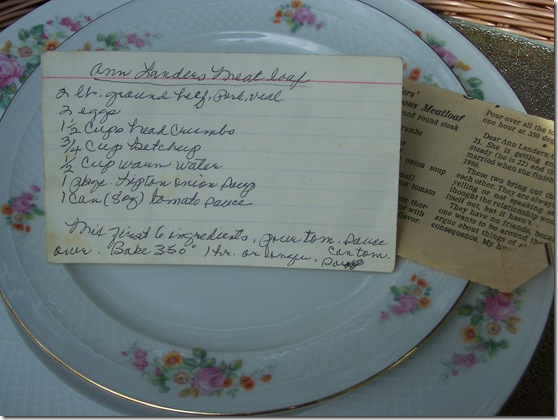 Ann Landers Meat loaf
2 lb. ground beef, Pork, veal
2 eggs
1 1/2 Cups bread Crumbs
3/4 Cup Ketchup
1/2 Cup warm water
1 pkge. Lipton Onion Soup
1 Can (8oz) tomato sauce
Mix first 6 ingredients, pour tom. sauce
over. Bake 350° 1 Hr. or longer, Can tom.
Soup
ders'
ous Meatloaf
und round steak
rumbs
onion soup
cal)
s tomato
s thor-
m with
flavor.
Pour over all the
one hour at 350 de
Dear Ann Landers
21. She is getting
steady (he is 22) and th
married when she finish
1982.
These two bring out th
each other. They are always
yelling or not speaking. I
thought the relationship w
itself out. But it hasn't wo
They have no friends, beca
one wants to be around the
argue about things of
consequence. My h